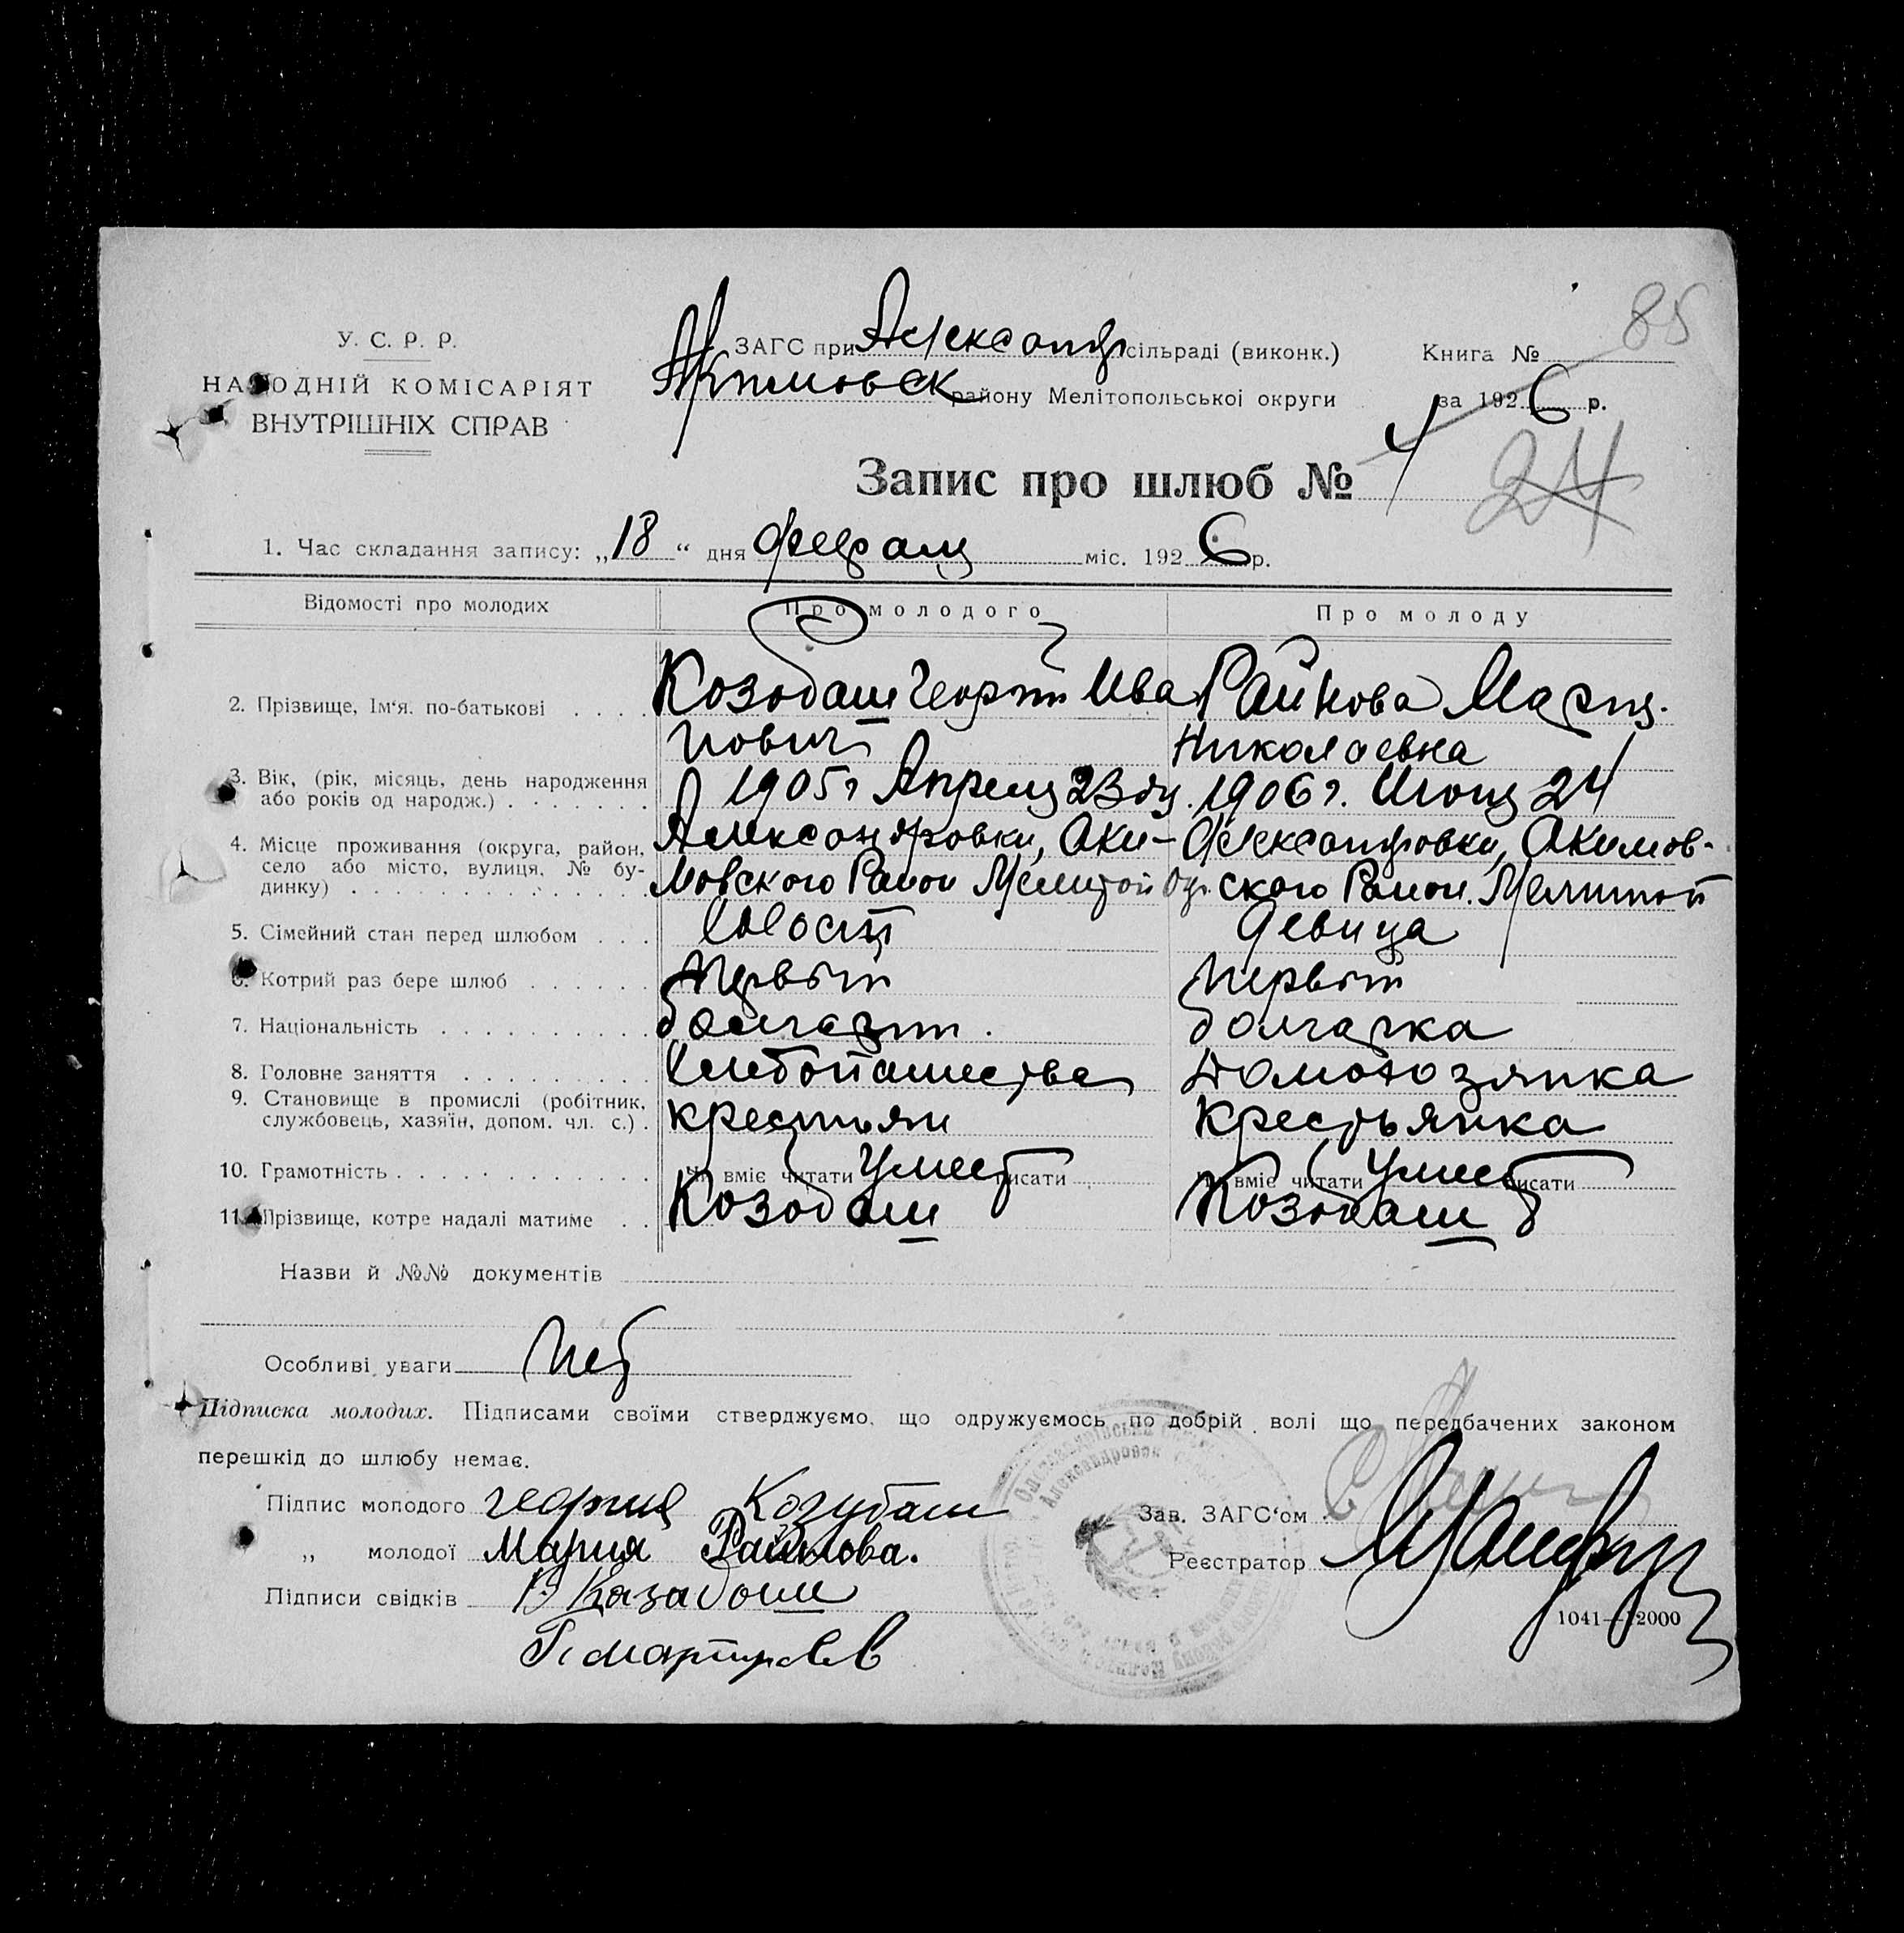 85
У. С. Р. Р.
НАРОДНІЙ КОМІСАРІЯТ
ВНУТРІШНІХ СПРАВ
ЗАГС при Александр сільраді (виконк.)
Акимовск району Мелітопольської округи
Книга №
за 192 6 р.
Запис про шлюб № 4
24
1. Час складання запису: „ 18 “ дня февраля міс. 192 6 р.
Відомості про молодих Про молодого Про молоду
2. Прізвище, Ім'я. по-батькові Козобаш Георгий Ива Райнова Мария
нович Николаевна
3. Вік, (рік, місяць, день народження 1905 г Апреля 23 дн. 1906 г. Июня 24
або років од народж.)
4. Місце проживання (округа, район, Александровки, Аки- Александровки, Акимов-
село або місто, вулиця, № бу- мовского Район Мелитоп Окр. ского Район. Мелитоп
динку)
5. Сімейний стан перед шлюбом Холост Девица
6. Котрий раз бере шлюб Первый Первый
7. Національність болгарин. болгарка
8. Головне заняття Хлебопашества Домохозяйка
9. Становище в промислі (робітник, крестьян Крестьянка
службовець, хазяїн, допом. чл. с.)
10. Грамотність Чи вміє читати Умеет писати Чи вміє читати Умеет писати
11. Прізвище, котре надалі матиме Козобаш Козобаш
Назви й №№ документів
Особливі уваги Нет
Підписка молодих. Підписами своїми стверджуємо, що одружуємось по добрій волі що передбачених законом
перешкід до шлюбу немає.
Підпис молодого Георгия Козубаш
„ молодої Мария Райнова.
Підписи свідків В Казабаш
Зав. ЗАГС'ом
Реєстратор
1041—12000